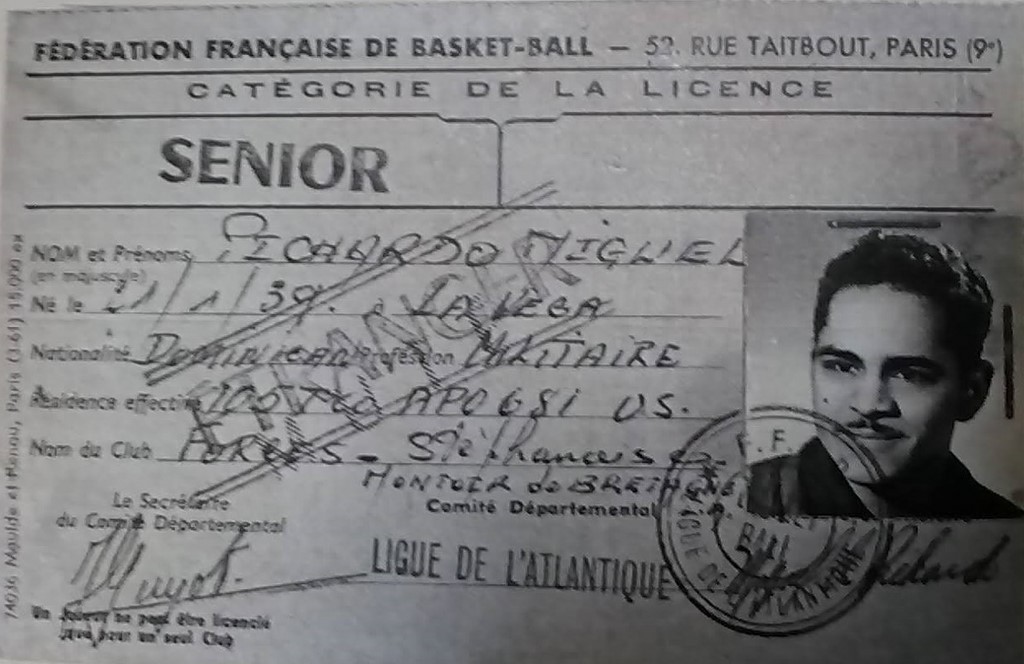 FÉDÉRATION FRANÇAISE DE BASKET-BALL — 52, RUE TAITBOUT, PARIS (9e)
CATÉGORIE DE LA LICENCE
SENIOR
NOM et Prénoms PICHARDO MIGUEL
(en majuscule)
Né le 1/1/39 à LA VEGA
Nationalité DOMINICAN Profession MILITAIRE
Résidence effective APO 6SI US.
Nom du Club FORCES - Sté française
MONTOIR de BRETAGNE
ETRANGER
Le Secrétaire
du Comité Départemental
Comité Départemental
LIGUE DE L'ATLANTIQUE
F. F.
BALL
LIGUE DE L'ATLANTIQUE
Un joueur ne peut être licencié
que pour un seul Club
7A036 Maulde et Renou, Paris (3.61) 15.000 ex